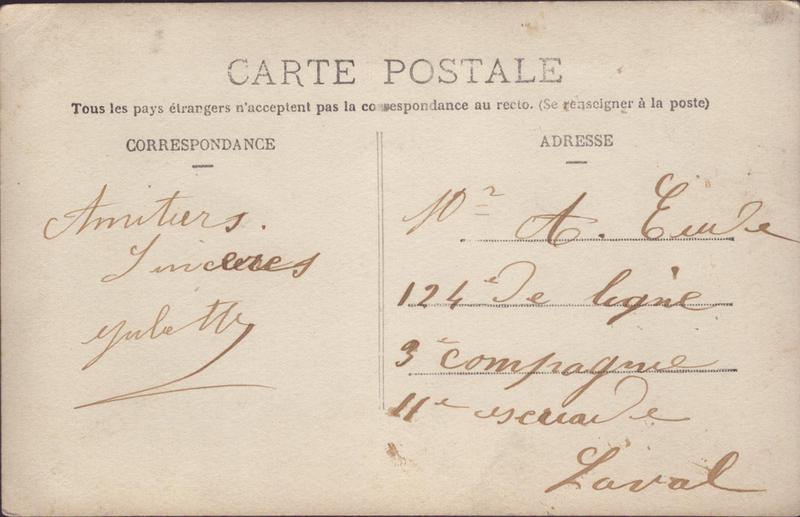 CARTE POSTALE
Tous les pays étrangers n'acceptent pas la correspondance au recto. (Se renseigner à la poste)
CORRESPONDANCE
Amitiers.
Sinceres
ADRESSE
Mr A.
124e de ligne
3e compagnie
11e escuade
Laval